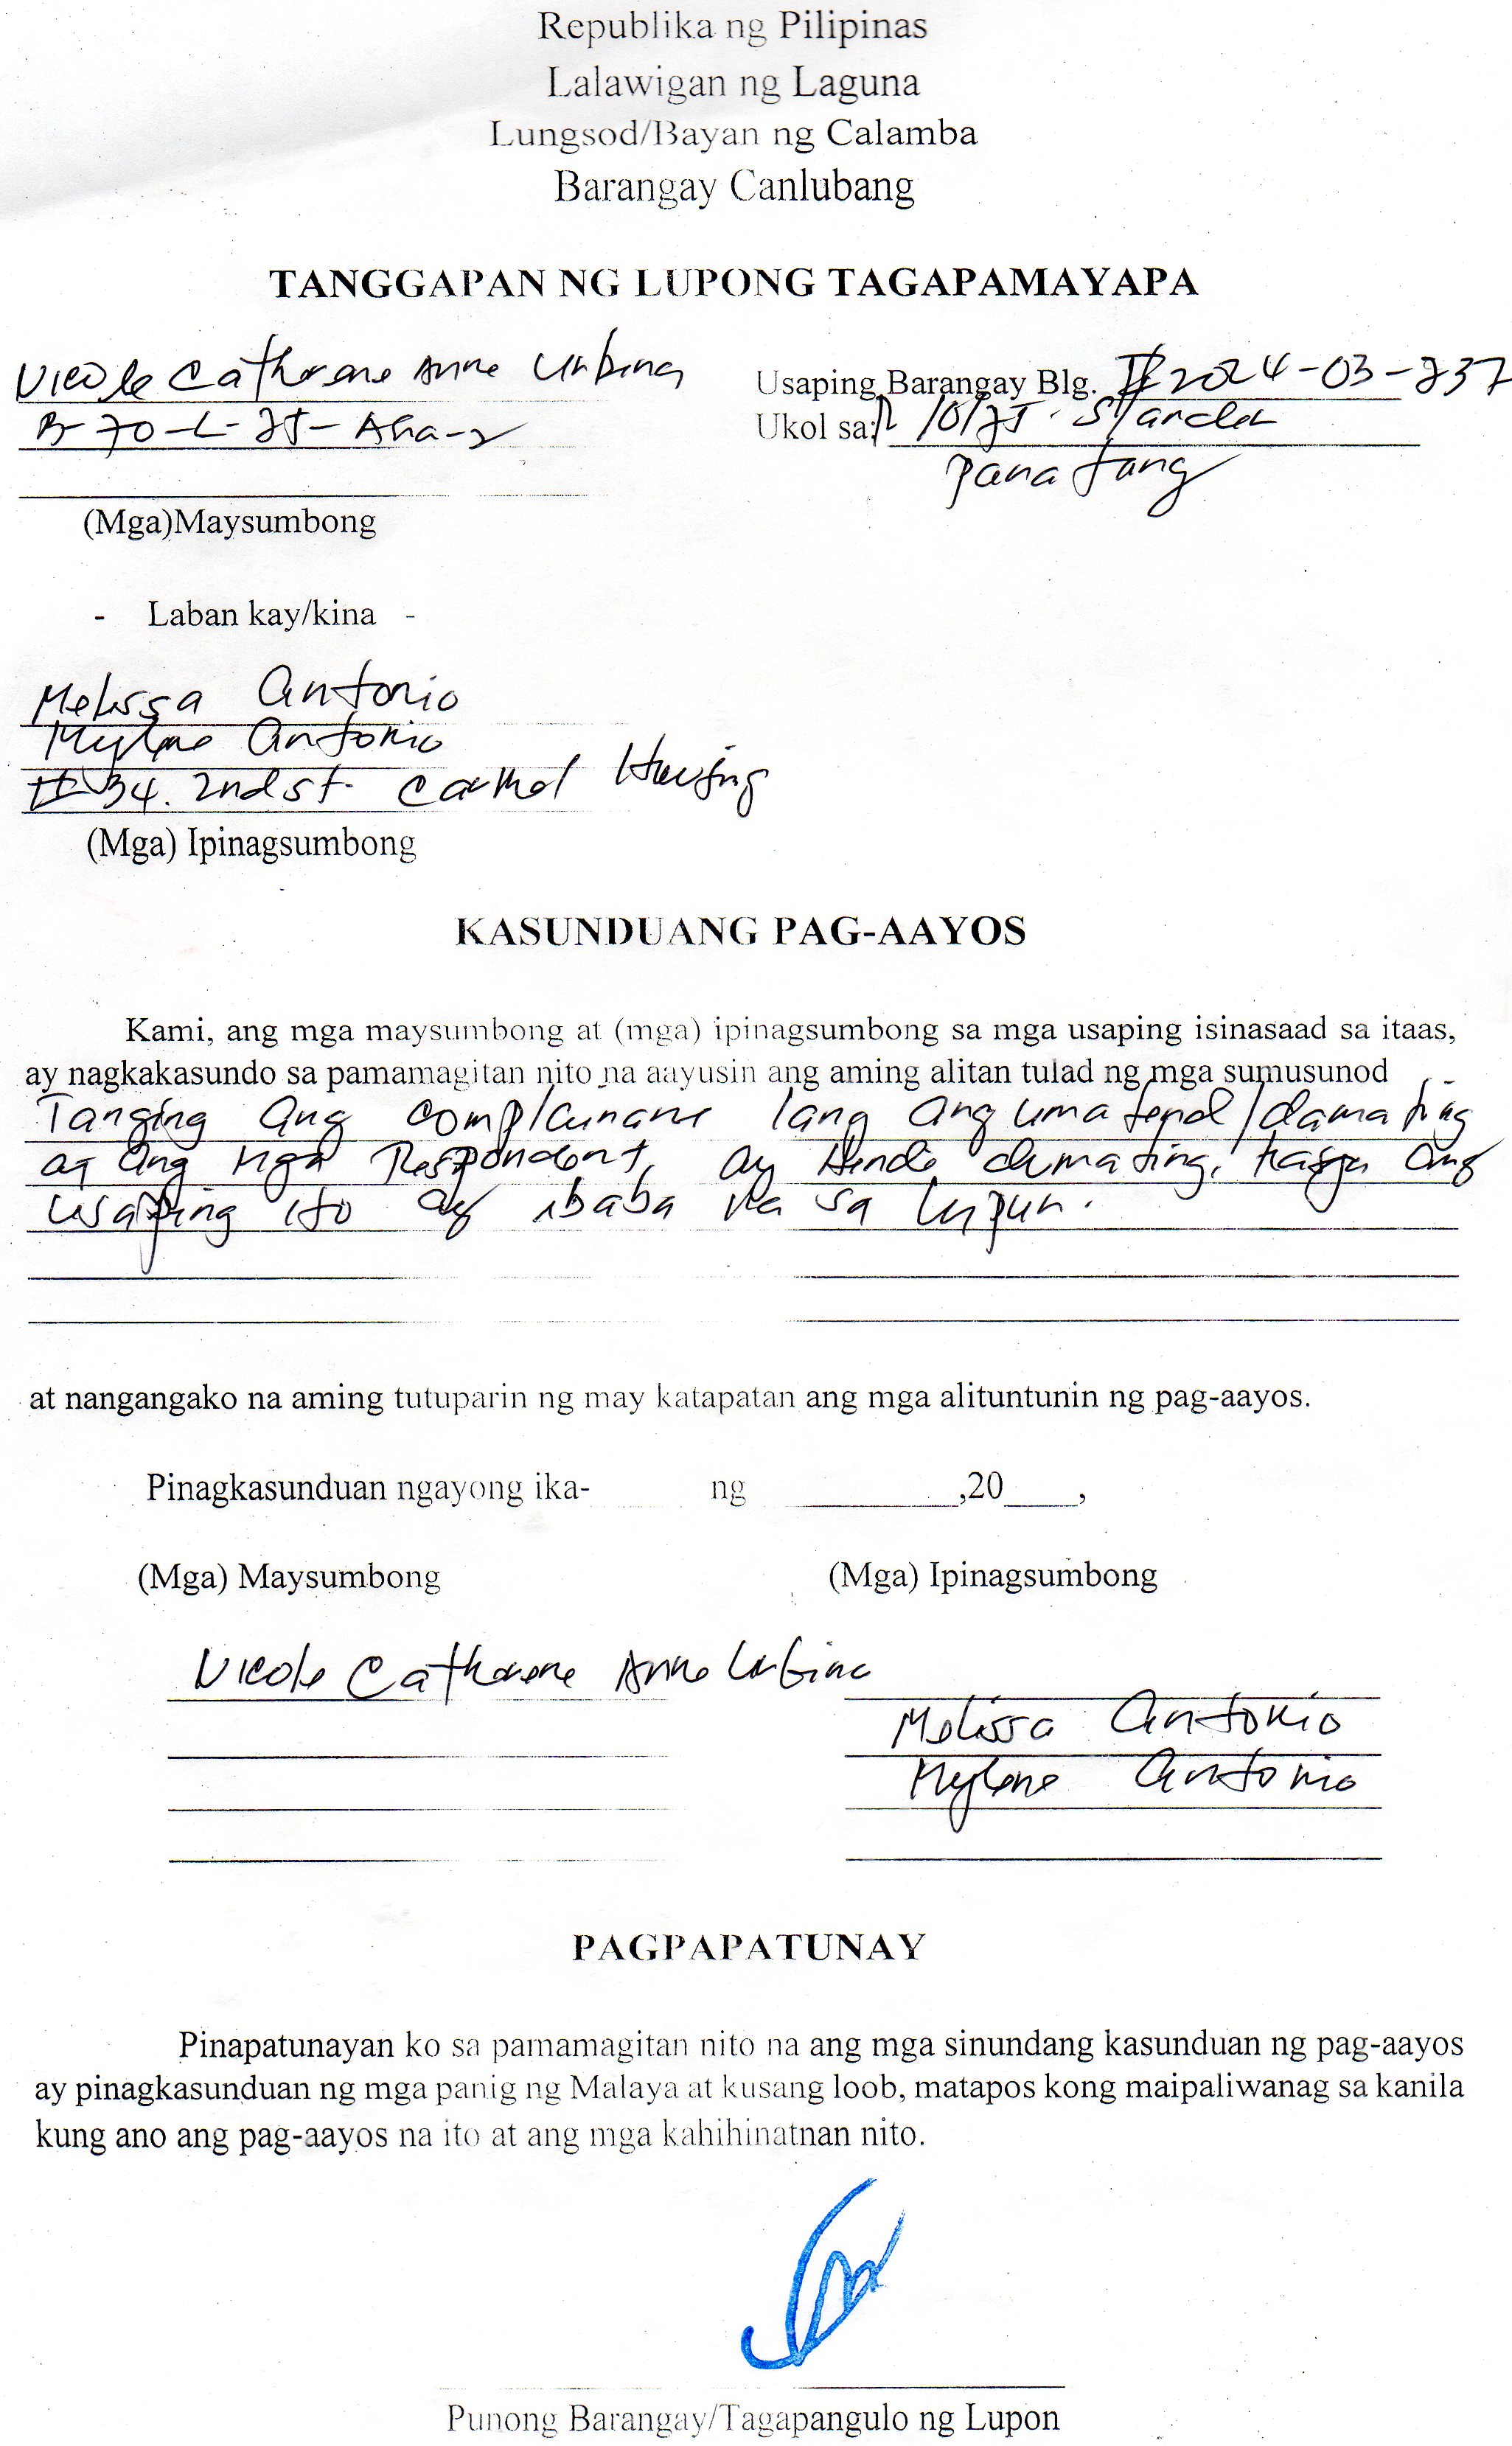 Republika ng Pilipinas
Lalawigan ng Laguna
Lungsod/Bayan ng Calamba
Barangay Canlubang
TANGGAPAN NG LUPONG TAGAPAMAYAPA
Nicole Catherene Anne Urbina
B-70-L-25-Asia-2
Usaping Barangay Blg. 2024-03-237
Ukol sa: Slander
(Mga)Maysumbong
- Laban kay/kina -
Melissa Antonio
Mylene Antonio
# 34. 2nd st. Carmel Housing
(Mga) Ipinagsumbong
KASUNDUANG PAG-AAYOS
Kami, ang mga maysumbong at (mga) ipinagsumbong sa mga usaping isinasaad sa itaas,
ay nagkakasundo sa pamamagitan nito na aayusin ang aming alitan tulad ng mga sumusunod
Tanging ang complainant lang ang umatend/dumating
at ang mga Respondent, ay Hindi dumating, kaya ang
usaping ito ay ibaba na sa lupun.
at nangangako na aming tutuparin ng may katapatan ang mga alituntunin ng pag-aayos.
Pinagkasunduan ngayong ika- ng ,20 ,
(Mga) Maysumbong (Mga) Ipinagsumbong
Nicole Catherene Anne Urbina
Melissa Antonio
Mylene Antonio
PAGPAPATUNAY
Pinapatunayan ko sa pamamagitan nito na ang mga sinundang kasunduan ng pag-aayos
ay pinagkasunduan ng mga panig ng Malaya at kusang loob, matapos kong maipaliwanag sa kanila
kung ano ang pag-aayos na ito at ang mga kahihinatnan nito.
Punong Barangay/Tagapangulo ng Lupon